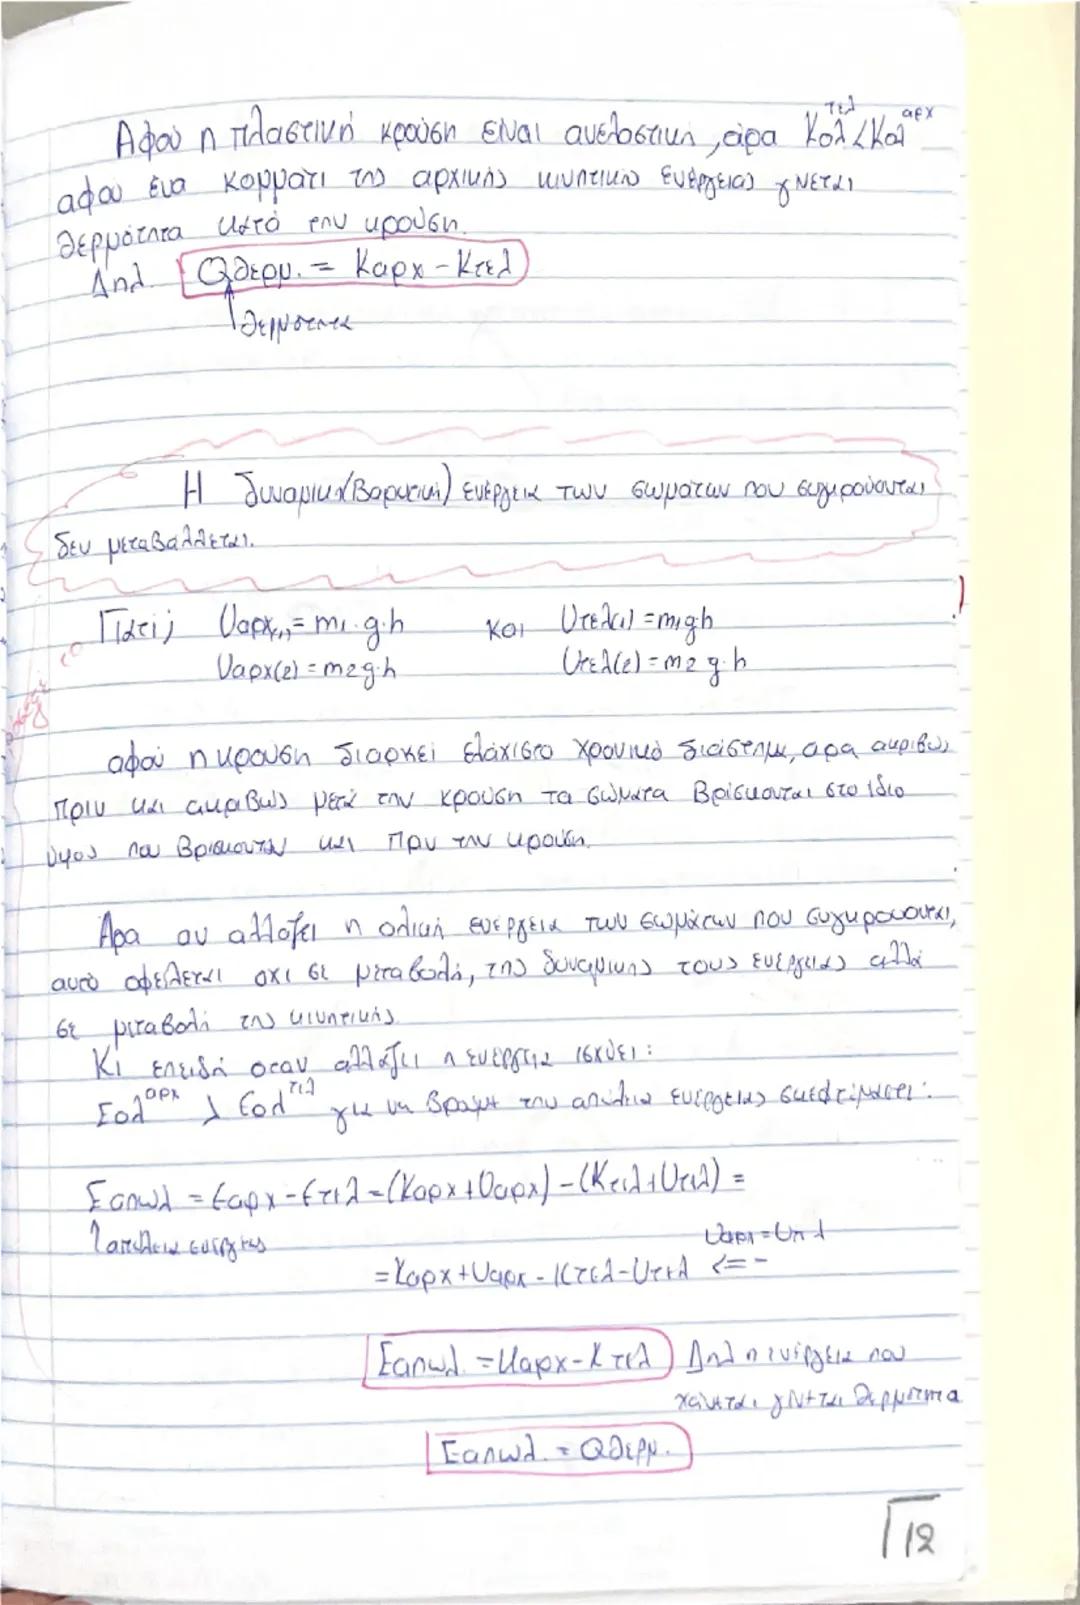 Αφού η πλαστική κρούση είναι ανελαστική, άρα Κολ τελ < Κολ αρχ
αφού ένα κομμάτι της αρχικής κινητικής ενέργειας γίνεται
θερμότητα κατά την κρούση.
Δηλ. Qθερμ. = Καρχ - Κτελ
θερμότητα
Η δυναμική (Βαρυτική) ενέργεια των σωμάτων που συγκρούονται
δεν μεταβάλλεται.
Γιατί; Uαρχ(1) = m1·g·h και Uτελ(1) = m1gh !
Uαρχ(2) = m2g·h Uτελ(2) = m2 g·h
αφού η κρούση διαρκεί ελάχιστο χρονικό διάστημα, άρα ακριβώς
πριν και ακριβώς μετά την κρούση τα σώματα Βρίσκονται στο ίδιο
ύψος που Βρίσκονταν και πριν την κρούση.
Άρα αν αλλάξει η ολική ενέργεια των σωμάτων που συγκρούονται,
αυτό οφείλεται όχι σε μεταβολή, της δυναμικής τους ενέργειας αλλά
σε μεταβολή της κινητικής
Κι επειδή όταν αλλάζει η ενέργεια ισχύει:
Εολ αρχ > Εολ τελ για να βρούμε την απώλεια ενέργειας σκεφτόμαστε:
Εαπωλ = Εαρχ - Ετελ = (Καρχ + Uαρχ) - (Κτελ + Uτελ) =
απώλεια ενέργειας
Uαρχ = Uτελ
= Καρχ + Uαρχ - Κτελ - Uτελ <=-
Εαπωλ. = Καρχ - Κτελ Δηλ η ενέργεια που
χάνεται γίνεται θερμότητα
Εαπωλ. = Qθερμ.
12